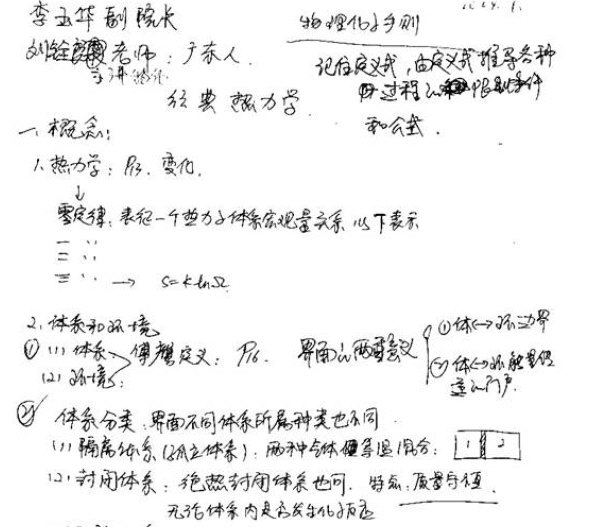 李玉华副院长
物理化学手则
老师：广东人
记住定义式，由定义式推导各种
过程的限制条件
和公式．
经典热力学
一、概念：
1．热力学：P13．变化．
↓
零定律：表征一个热力学体系宏观量关系 以下表示
一 〃
二 〃
三 〃 → S=klnΩ
2．体系和环境
① (1) 体系 定义：P16． 界面的两重意义 ①体↔环边界
(2) 环境： ②体↔环能量传
递的门户．
② 体系分类：界面不同体系所属种类也不同
(1) 隔离体系（孤立体系）：两种气体恒等温混合： 1 2
(2) 封闭体系：绝热封闭体系也可．特点：质量守恒．
无论体系内是否发生化学反应